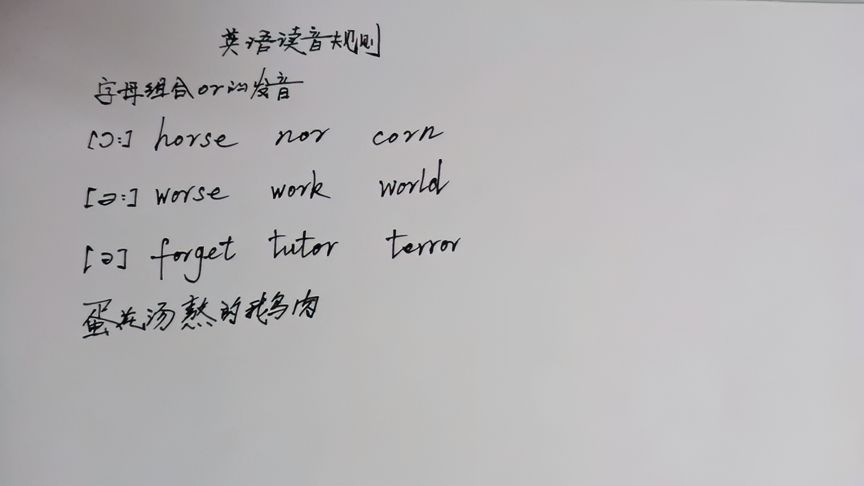 英语读音规则
字母组合or的发音
[ɔ:] horse nor corn
[ə:] worse work world
[ə] forget tutor terror
蛋花汤熬的鹅肉